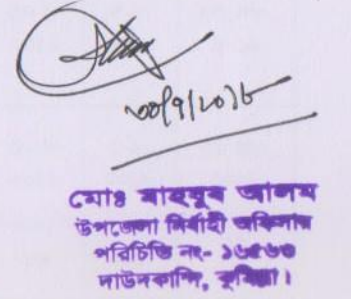 ৩০/৭/২০১৮
মোঃ মাহবুব আলম
উপজেলা নির্বাহী অফিসার
পরিচিতি নং- ১৬৫৬৩
দাউদকান্দি, কুমিল্লা।